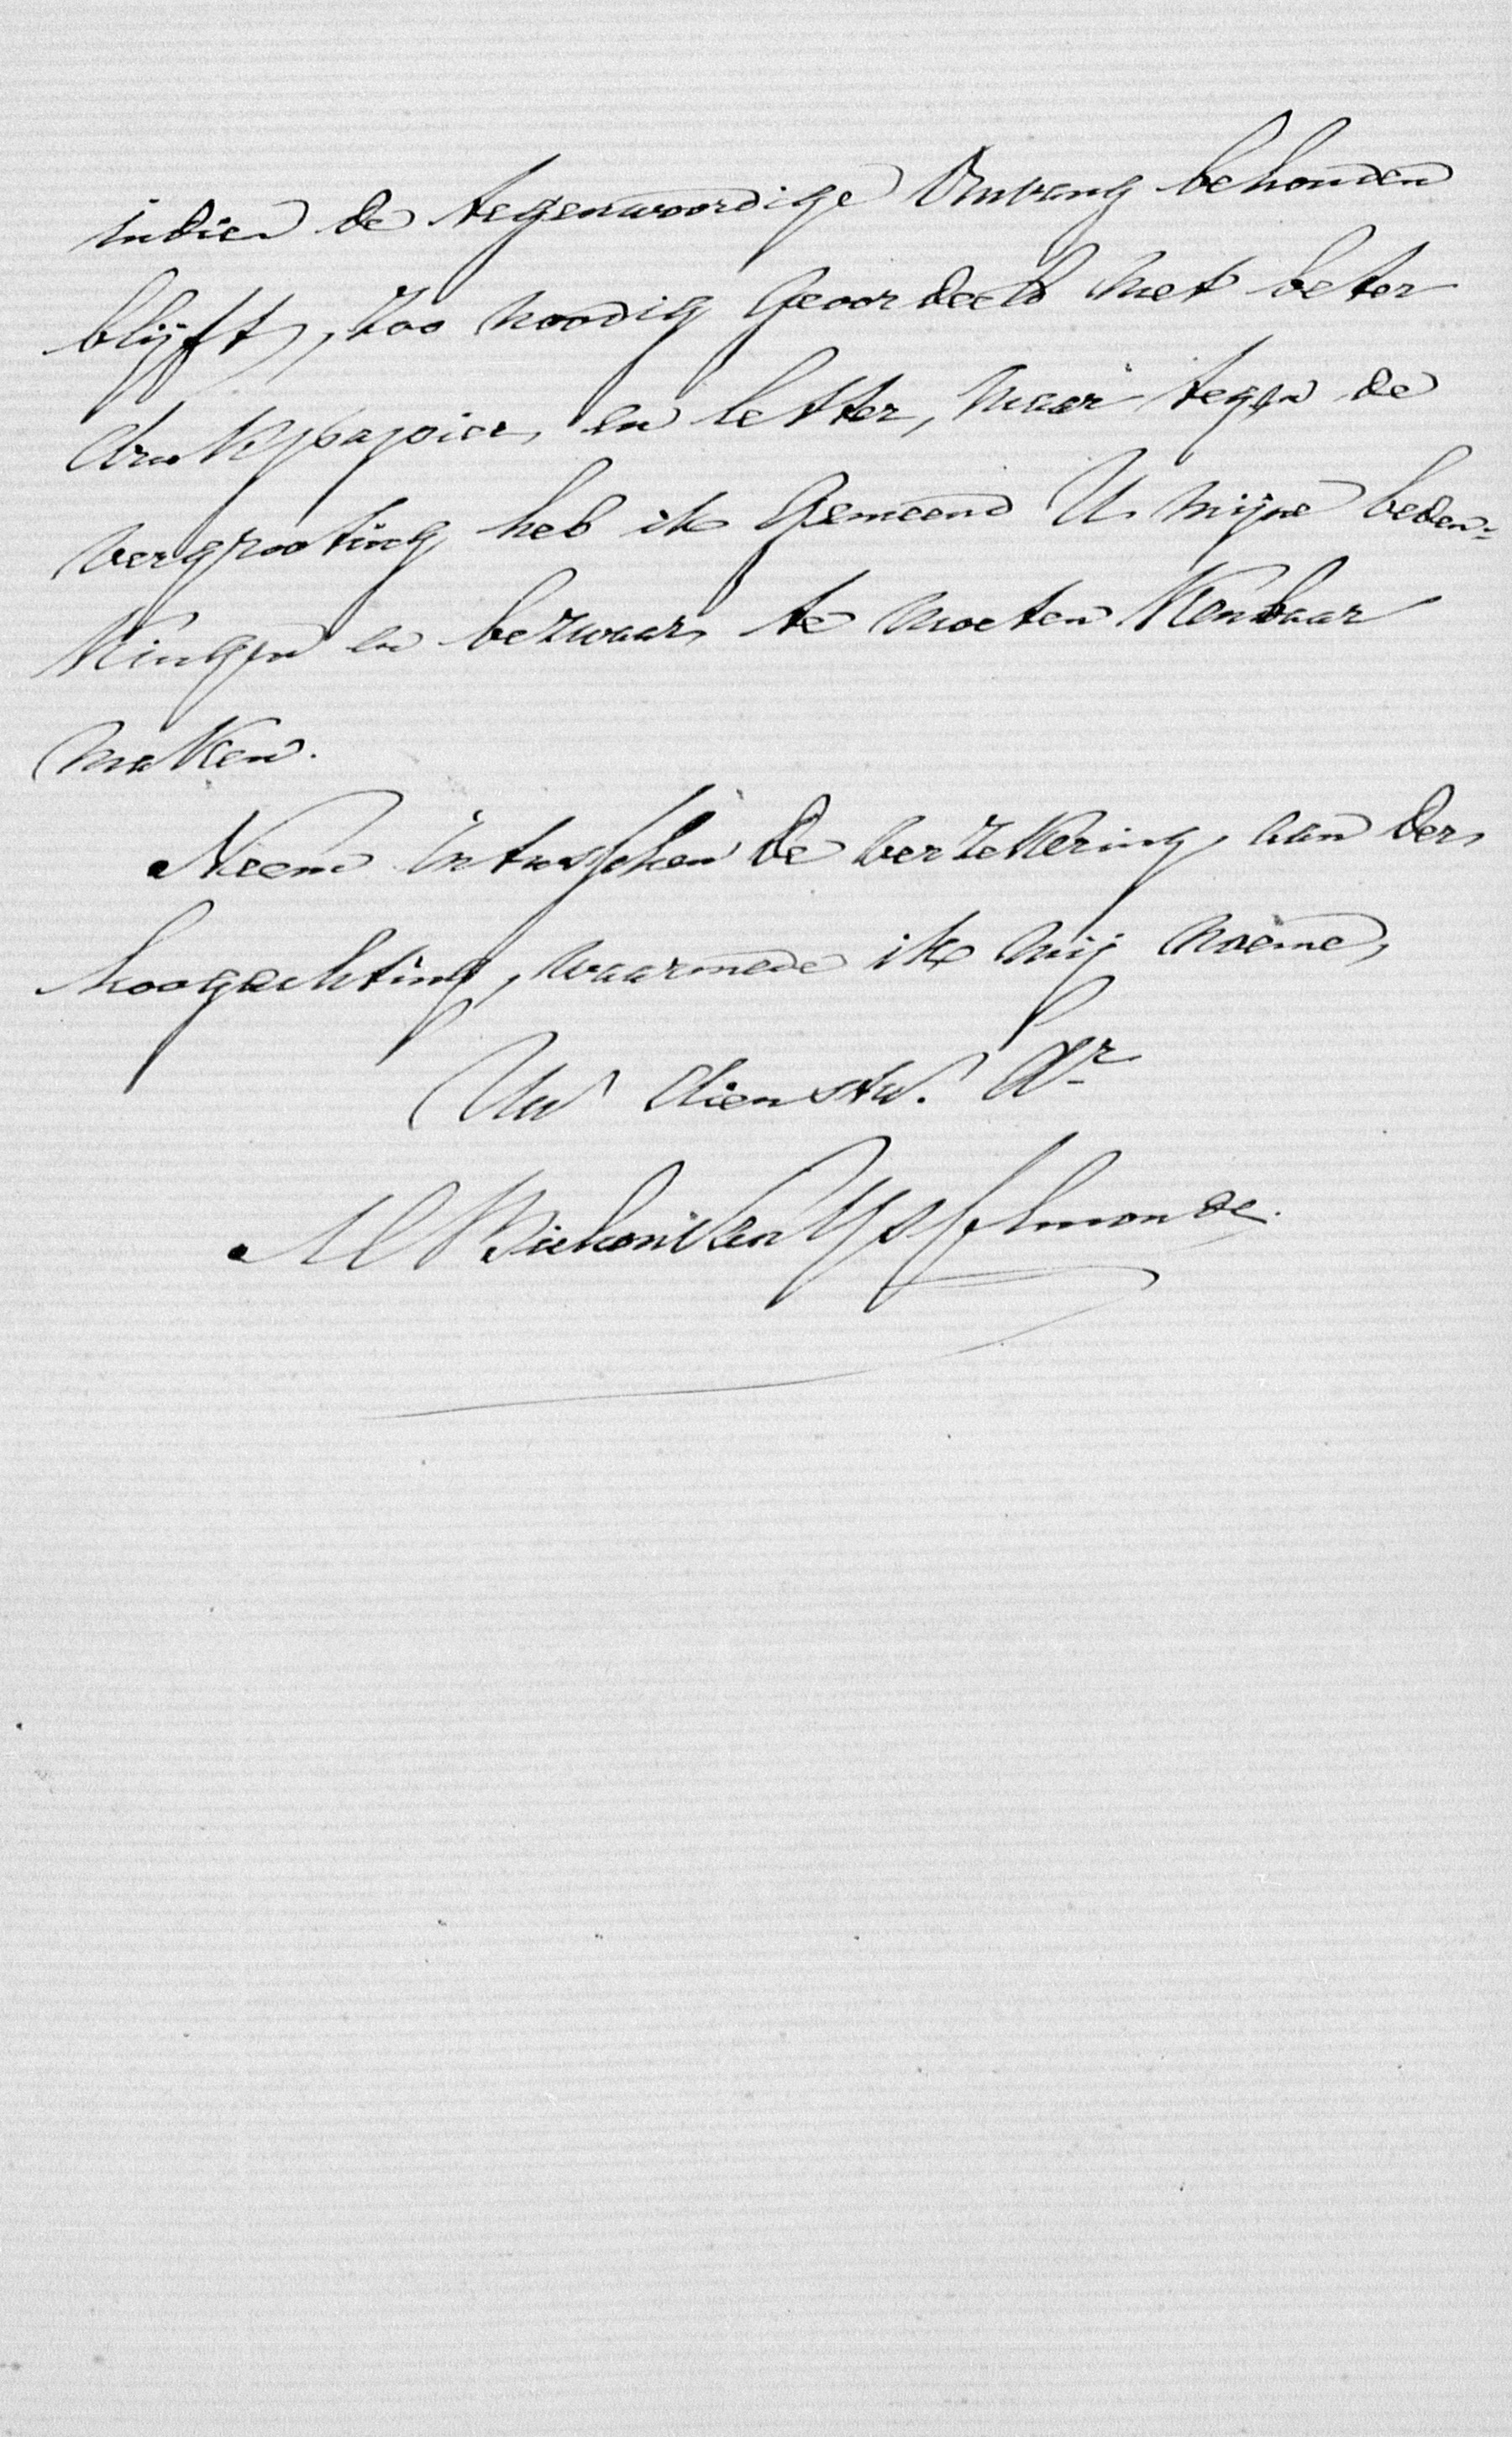 indien de tegenwoordige Omvang behouden
blijft, zoo noodig geoordeeld met beter
drukpapier, en letter, maar tegen de
vergrooting heb ik gemeend U mijne beden=
kingen en bezwaar, te moeten Kenbaar
maken.
Neem intusschen de verzekering, aan der
hoogachting, waarmede ik mij noeme,
Uw dienstw. Dr